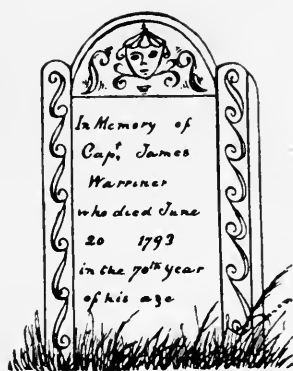 In Memory of
Capt. James
Warriner
who died June
20 1793
in the 70th year
of his age